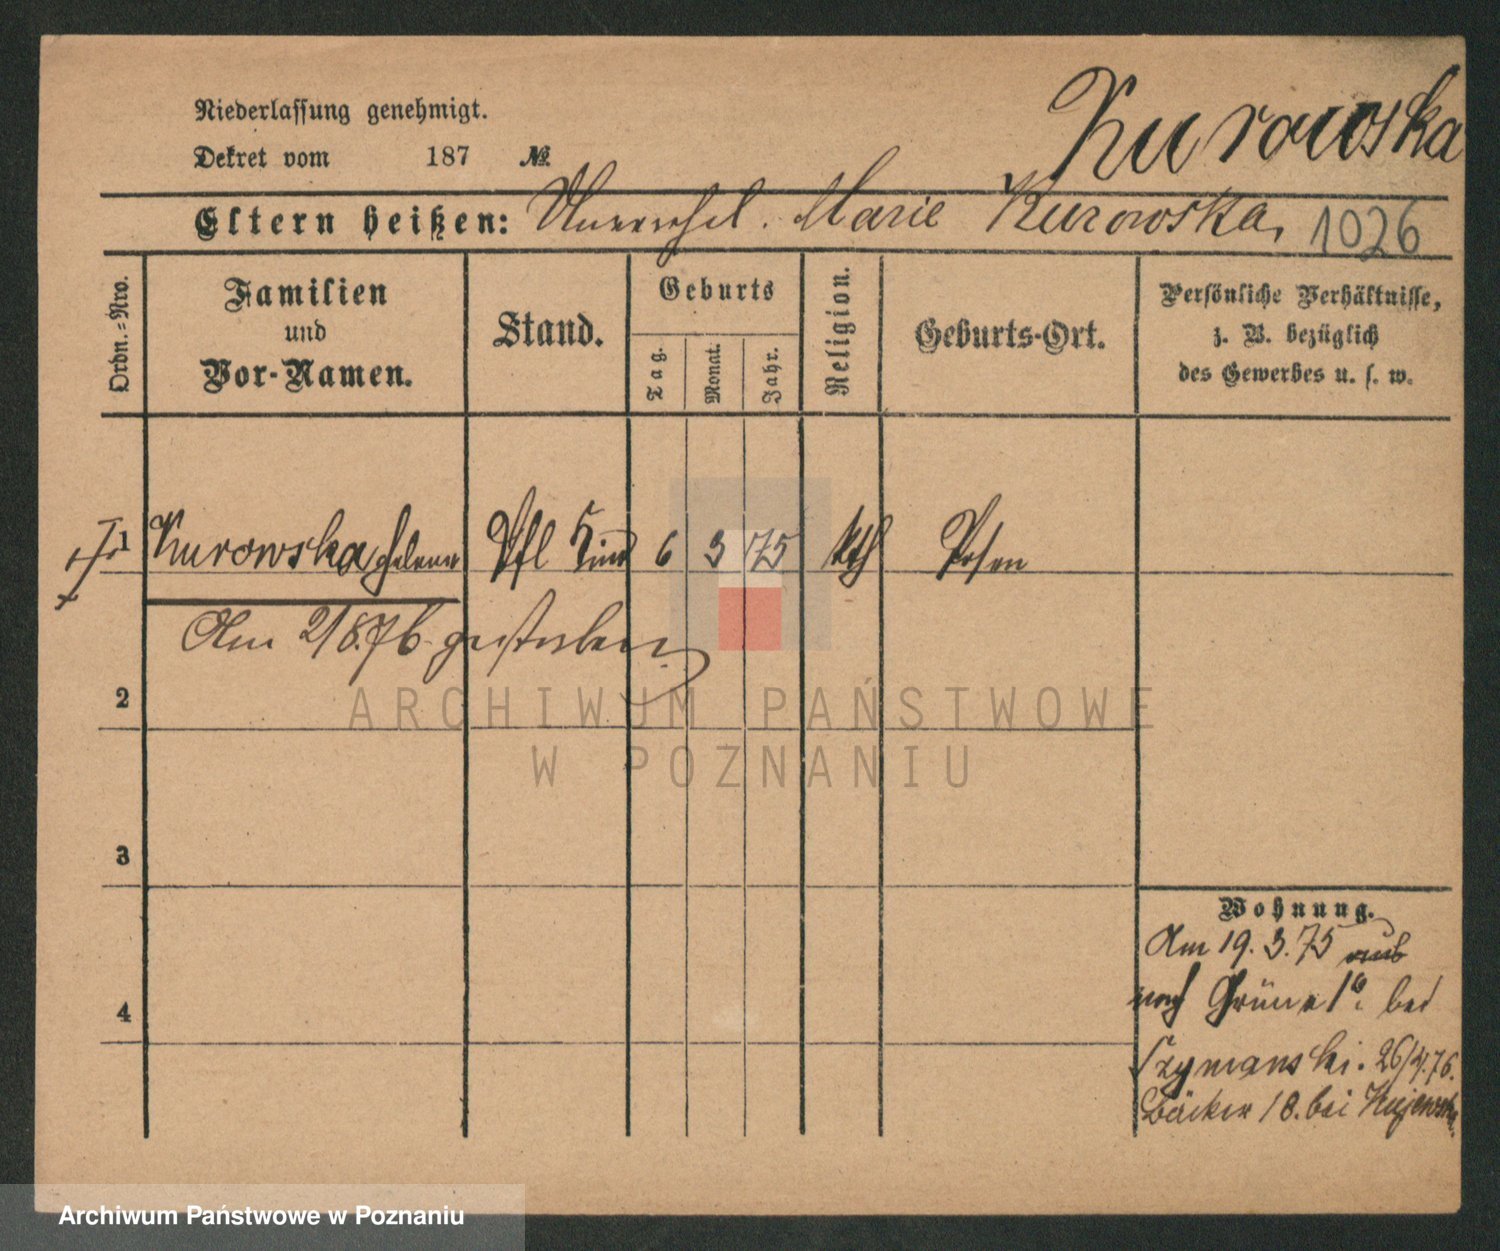 Kurowska
Niederlassung genehmigt.
Dekret vom 187 №
Eltern heißen: Unverehel. Marie Kurowska, 1026
Ordn.-Nro.
Familien
und
Vor-Namen.
Stand.
Geburts
Tag.
Monat.
Jahr.
Religion.
Geburts-Ort.
Persönliche Verhältnisse,
z. B. bezüglich
des Gewerbes u. s. w.
1 Kurowska Helene Pfl Kind 6 3 75 kth Posen
Am 2/8.76. gestorben.
2
ARCHIWUM PAŃSTWOWE
W POZNANIU
3
4
Wohnung.
Am 19.3.75
nach Grüne 1 bei
Szymanski. 26/4.76.
Bäcker 18. bei Kujewska.
Archiwum Państwowe w Poznaniu